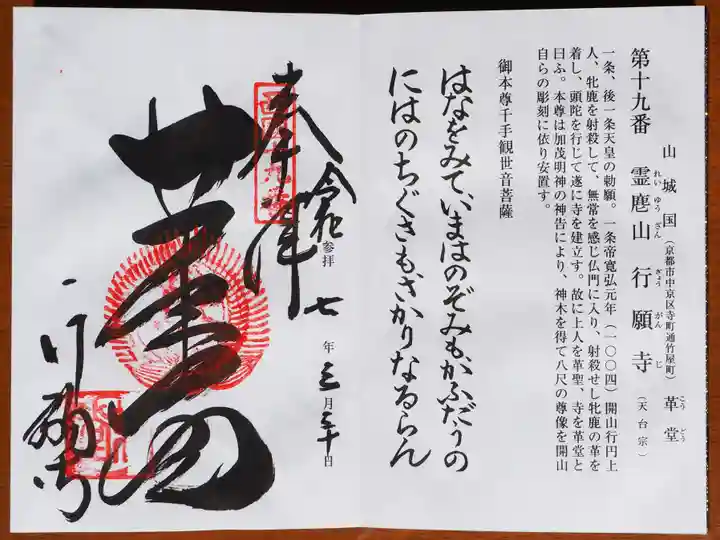 山城国（京都市中京区寺町通竹屋町）革堂
こうどう
第十九番 霊麀山 行願寺（天台宗）
れいゆうざん ぎょうがんじ
一条、後一条天皇の勅願。一条帝寛弘元年（一〇〇四）開山行円上
人、牝鹿を射殺して、無常を感じ仏門に入り、射殺せし牝鹿の革を
着し、頭陀を行じて遂に寺を建立す。故に上人を革聖、寺を革堂と
曰ふ。本尊は加茂明神の神告により、神木を得て八尺の尊像を開山
自らの彫刻に依り安置す。
御本尊千手観世音菩薩
はなをみていまはのぞみもかふだうの
にはのちぐさもさかりなるらん
奉拝
令和七年三月三十日
参拝
行願寺